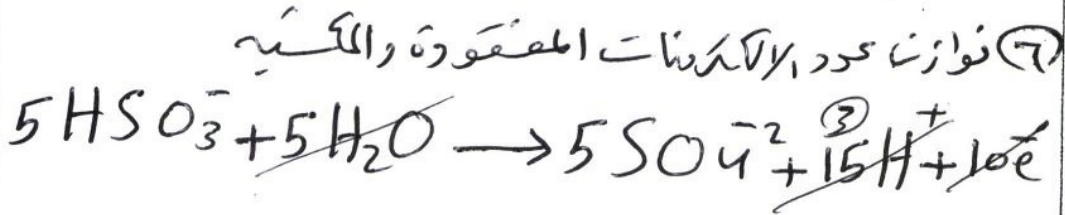 ٦ نوازن عدد الالكترونات المفقودة والمكتسبه
5HSO₃⁻ + 5H₂O → 5SO₄⁻² + 15H⁺ + 10e⁻
③